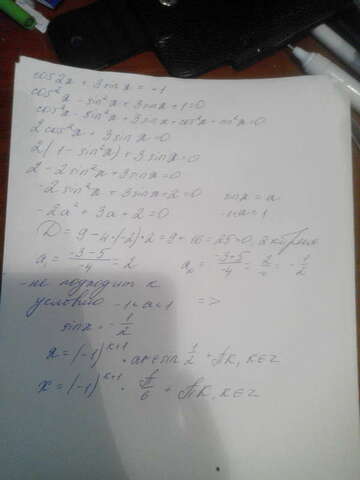 cos2x + 3sinx = -1
cos²x - sin²x + 3sinx + 1 = 0
cos²x - sin²x + 3sinx + cos²x + sin²x = 0
2cos²x + 3sinx = 0
2(1 - sin²x) + 3sinx = 0
2 - 2sin²x + 3sinx = 0
-2sin²x + 3sinx + 2 = 0 sinx = a
-2a² + 3a + 2 = 0 -1<a<1
D = 9 - 4·(-2)·2 = 9 + 16 = 25 > 0, 2 корня
a₁ = (-3-5)/-4 = 2 a₂ = (-3+5)/-4 = 2/-4 = -1/2
- не подходит к
условию -1<a<1 =>
sinx = -1/2
x = (-1)^(k+1) · arcsin 1/2 + Пk, k∈z
x = (-1)^(k+1) · П/6 + Пk, k∈z